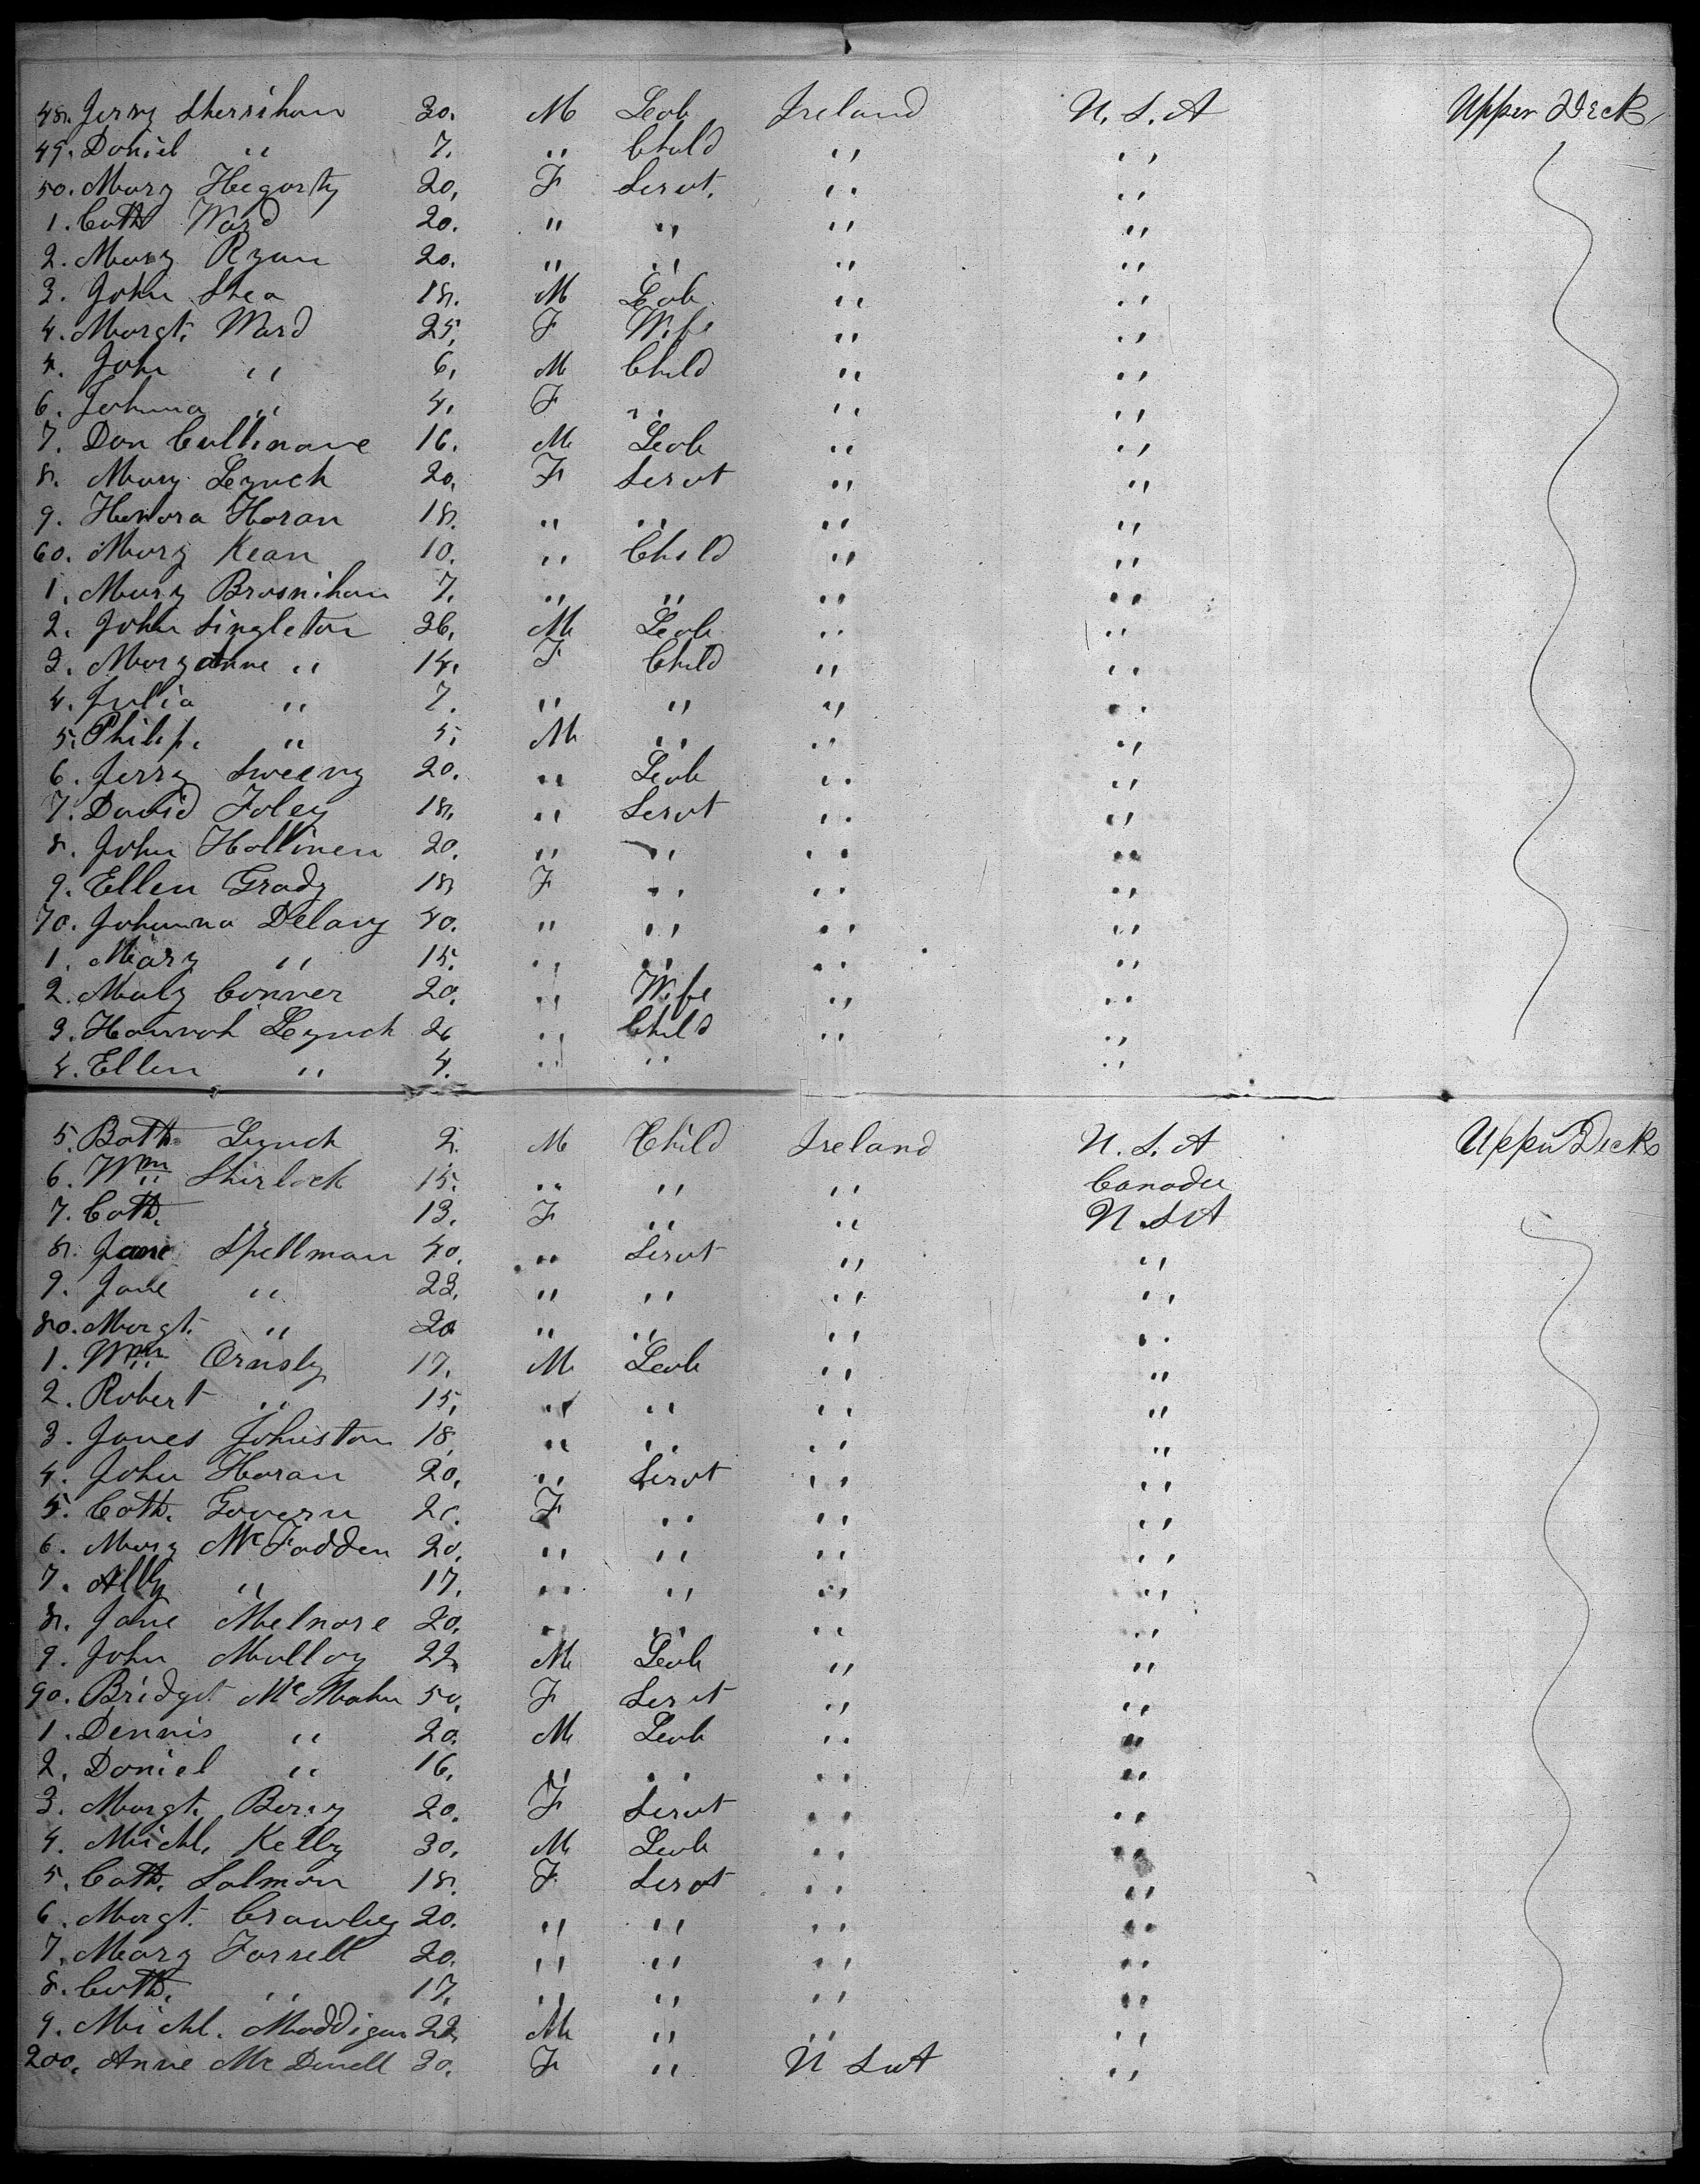 48. Jerry Sherrihan 30. M Lab Ireland U.S.A Upper Deck
49. Daniel " 7. " Child " "
50. Mary Hegarty 20. F Servt. " "
1. Cath Ward 20. " " " "
2. Mary Ryan 20. " " " "
3. John Shea 18. M Lab " "
4. Margt. Ward 25. F Wife " "
5. John " 6. M Child " "
6. Johnna " 4. F " " "
7. Dan Cullinane 16. M Lab " "
8. Mary Lynch 20. F Servt " "
9. Honora Horan 18. " " " "
60. Mary Kean 10. " Child " "
1. Mary Brosnihan 7. " " " "
2. John Singleton 36. M Lab " "
3. Mary Anne " 14. F Child " "
4. Julia " 7. " " " "
5. Philip. " 5. M " " "
6. Jerry Sweeny 20. " Lab " "
7. David Foley 18. " Servt " "
8. John Hallinen 20. " " " "
9. Ellen Grady 18 F " " "
70. Johanna Delany 40. " " " "
1. Mary " 15. " " " "
2. Maly Conner 20. " Wife " "
3. Hannah Lynch 26 " Child " "
4. Ellen " 4. " " "
5. Bath. Lynch 2. M Child Ireland U.S.A Upper Deck
6. Wm Shirlock 15. " " " Canada
7. Cath. " 13. F " " U.S.A
8. Jane Spellman 40. " Servt " "
9. Jane " 23. " " " "
80. Margt. " 20 " " " "
1. Wm Ornsby 17. M Lab " "
2. Robert " 15. " " " "
3. James Johnston 18. " " " "
4. John Horan 20. " Servt " "
5. Cath. Govern 20. F " " "
6. Mary McFadden 20. " " " "
7. Ally " 17. " " " "
8. Jane Melnore 20. " " " "
9. John Mulloy 22. M Lab " "
90. Bridget McMahn 50. F Servt " "
1. Dennis " 20. M Lab " "
2. Daniel " 16. " " " "
3. Margt. Berry 20. F Servt " "
4. Michl. Kelly 30. M Lab " "
5. Cath. Salmon 18. F Servt " "
6. Margt. Crawley 20. " " " "
7. Mary Farrell 20. " " " "
8. Cath. " 17. " " " "
9. Michl. Maddigan 22. M " " "
200. Anne McDonell 30. F " U.S.A "